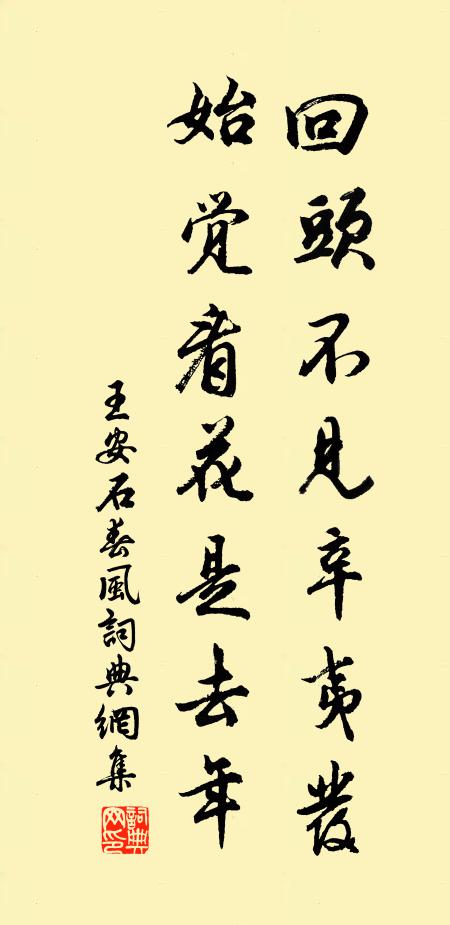 回頭不見辛夷發
始覺看花是去年
王安石春風詞典網集
詞典
网印